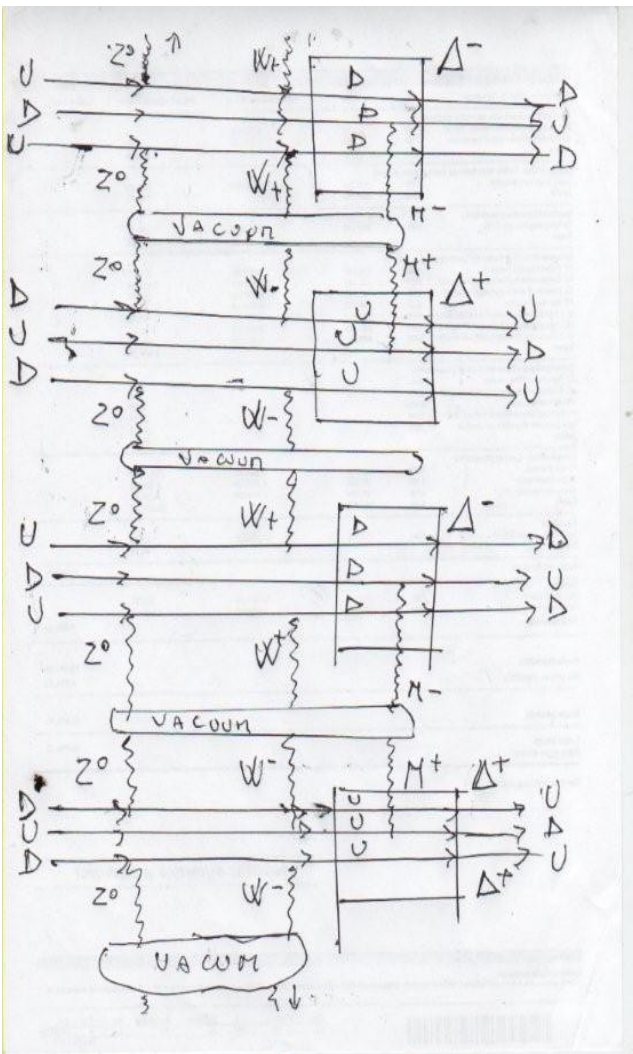 Z⁰ W+ Δ⁻
U D D
D D U
U D D
Z⁰ W+ M-
VACUUM
Z⁰ W- M+ Δ⁺
D U U
U U D
D U U
Z⁰ W-
VACUUM
Z⁰ W+ Δ⁻
U D D
D D U
U D D
Z⁰ W⁺ M-
VACUUM
Z⁰ W⁻ M⁺ Δ⁺
D U U
U U D
D U U
Z⁰ W⁻ Δ⁺
VACUM